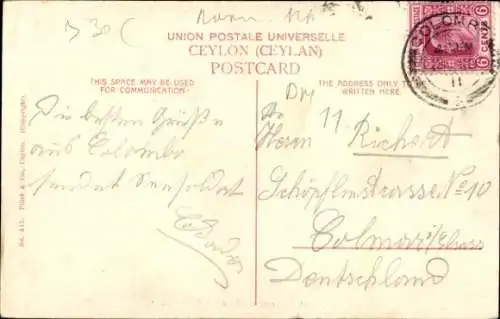 UNION POSTALE UNIVERSELLE
CEYLON (CEYLAN)
POSTCARD
THIS SPACE MAY BE USED
FOR COMMUNICATION
THE ADDRESS ONLY
WRITTEN HERE.
COLOMBO
6 CENTS 6
11
Die besten Grüße
aus Colombo
sendet
Herrn Richert
Schöpflinstrasse No 10
Colmar i/Elsass
Deutschland
No. 415. Plâté & Co., Ceylon. (Copyright).